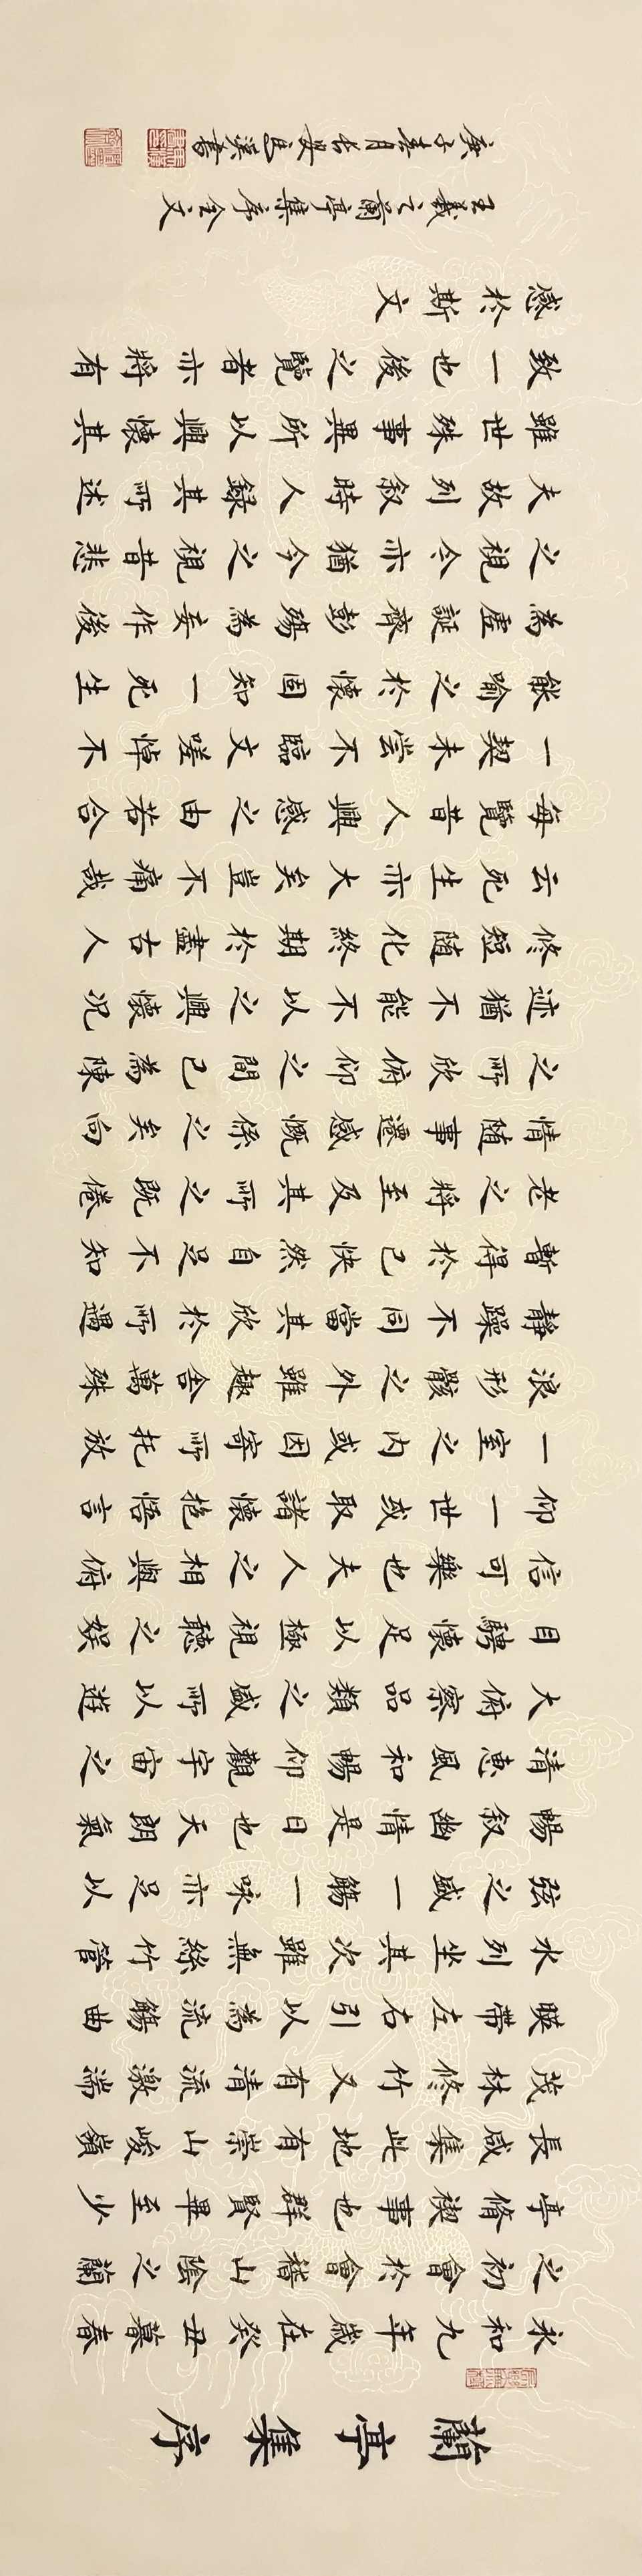 蘭亭集序
永和九年歲在癸丑暮春
之初會於會稽山陰之蘭
亭脩禊事也群賢畢至少
長咸集此地有崇山峻嶺
茂林修竹又有清流激湍
暎帶左右引以為流觴曲
水列坐其次雖無絲竹管
弦之盛一觴一咏亦足以
暢叙幽情是日也天朗氣
清惠風和暢仰觀宇宙之
大俯察品類之盛所以遊
目騁懷足以極視聽之娛
信可樂也夫人之相與俯
仰一世或取諸懷抱悟言
一室之內或因寄所托放
浪形骸之外雖趣舍萬殊
靜躁不同當其欣於所遇
暫得於己快然自足不知
老之將至及其所之既倦
情随事遷感慨係之矣向
之所欣俯仰之間已為陳
迹猶不能不以之興懷況
修短随化終期於盡古人
云死生亦大矣豈不痛哉
每覽昔人興感之由若合
一契未嘗不臨文嗟悼不
能喻之於懷固知一死生
為虛誕齊彭殤為妄作後
之視今亦猶今之視昔悲
夫故列叙時人録其所述
雖世殊事異所以興懷其
致一也後之覽者亦將有
感於斯文
王羲之蘭亭集序全文
庚子春月長安溪書